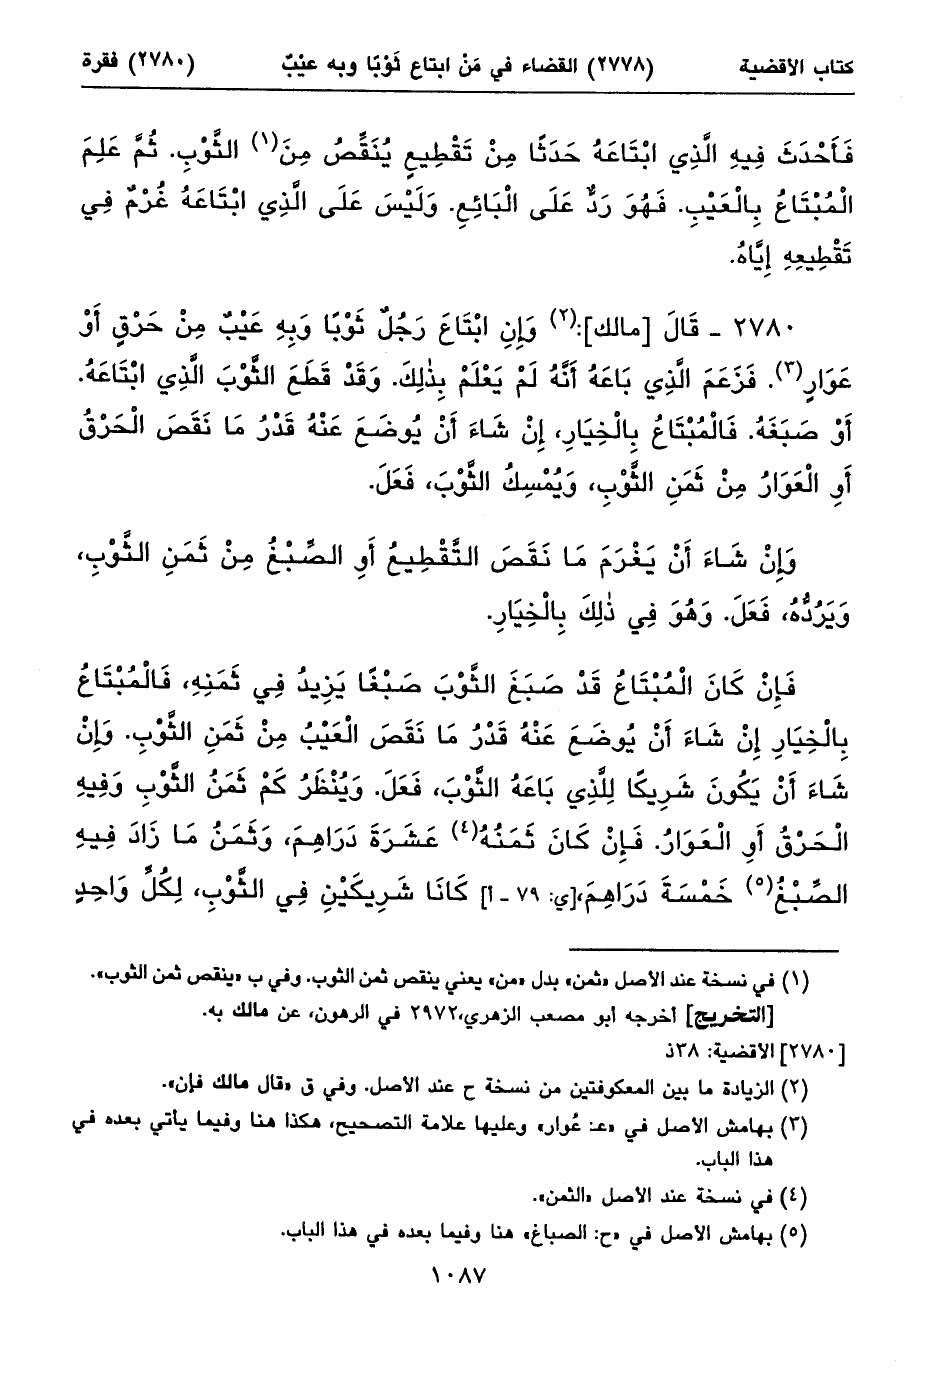 كتاب الأقضية (٢٧٧٨) القضاء في مَنْ ابتاع ثَوْبًا وبه عيْبٌ (٢٧٨٠) فقرة
فَأَحْدَثَ فِيهِ الَّذِي ابْتَاعَهُ حَدَثًا مِنْ تَقْطِيعٍ يُنَقِّصُ مِنَ(١) الثَّوْبِ. ثُمَّ عَلِمَ
الْمُبْتَاعُ بِالْعَيْبِ. فَهُوَ رَدٌّ عَلَى الْبَائِعِ. وَلَيْسَ عَلَى الَّذِي ابْتَاعَهُ غُرْمٌ فِي
تَقْطِيعِهِ إِيَّاهُ.
٢٧٨٠ - قَالَ [مالك]:(٢) وَإِنِ ابْتَاعَ رَجُلٌ ثَوْبًا وَبِهِ عَيْبٌ مِنْ حَرْقٍ أَوْ
عَوَارٍ(٣). فَزَعَمَ الَّذِي بَاعَهُ أَنَّهُ لَمْ يَعْلَمْ بِذٰلِكَ. وَقَدْ قَطَعَ الثَّوْبَ الَّذِي ابْتَاعَهُ.
أَوْ صَبَغَهُ. فَالْمُبْتَاعُ بِالْخِيَارِ، إِنْ شَاءَ أَنْ يُوضَعَ عَنْهُ قَدْرُ مَا نَقَصَ الْحَرْقُ
أَوِ الْعَوَارُ مِنْ ثَمَنِ الثَّوْبِ، وَيُمْسِكُ الثَّوْبَ، فَعَلَ.
وَإِنْ شَاءَ أَنْ يَغْرَمَ مَا نَقَصَ التَّقْطِيعُ أَوِ الصِّبْغُ مِنْ ثَمَنِ الثَّوْبِ،
وَيَرُدُّهُ، فَعَلَ. وَهُوَ فِي ذٰلِكَ بِالْخِيَارِ.
فَإِنْ كَانَ الْمُبْتَاعُ قَدْ صَبَغَ الثَّوْبَ صَبْغًا يَزِيدُ فِي ثَمَنِهِ، فَالْمُبْتَاعُ
بِالْخِيَارِ إِنْ شَاءَ أَنْ يُوضَعَ عَنْهُ قَدْرُ مَا نَقَصَ الْعَيْبُ مِنْ ثَمَنِ الثَّوْبِ. وَإِنْ
شَاءَ أَنْ يَكُونَ شَرِيكًا لِلَّذِي بَاعَهُ الثَّوْبَ، فَعَلَ. وَيُنْظَرُ كَمْ ثَمَنُ الثَّوْبِ وَفِيهِ
الْحَرْقُ أَوِ الْعَوَارُ. فَإِنْ كَانَ ثَمَنُهُ(٤) عَشَرَةَ دَرَاهِمَ، وَثَمَنُ مَا زَادَ فِيهِ
الصِّبْغُ(٥) خَمْسَةَ دَرَاهِمَ،[ي: ٧٩ - أ] كَانَا شَرِيكَيْنِ فِي الثَّوْبِ، لِكُلِّ وَاحِدٍ
(١) في نسخة عند الأصل «ثمن» بدل «من» يعني ينقص ثمن الثوب. وفي ب «ينقص ثمن الثوب».
[التخريج] أخرجه أبو مصعب الزهري،٢٩٧٢ في الرهون، عن مالك به.
[٢٧٨٠] الأقضية: ٣٨ذ
(٢) الزيادة ما بين المعكوفتين من نسخة ح عند الأصل. وفي ق «قال مالك فإن».
(٣) بهامش الأصل في «عـ: عُوار» وعليها علامة التصحيح، هكذا هنا وفيما يأتي بعده في
هذا الباب.
(٤) في نسخة عند الأصل «الثمن».
(٥) بهامش الأصل في «ح: الصباغ» هنا وفيما بعده في هذا الباب.
١٠٨٧